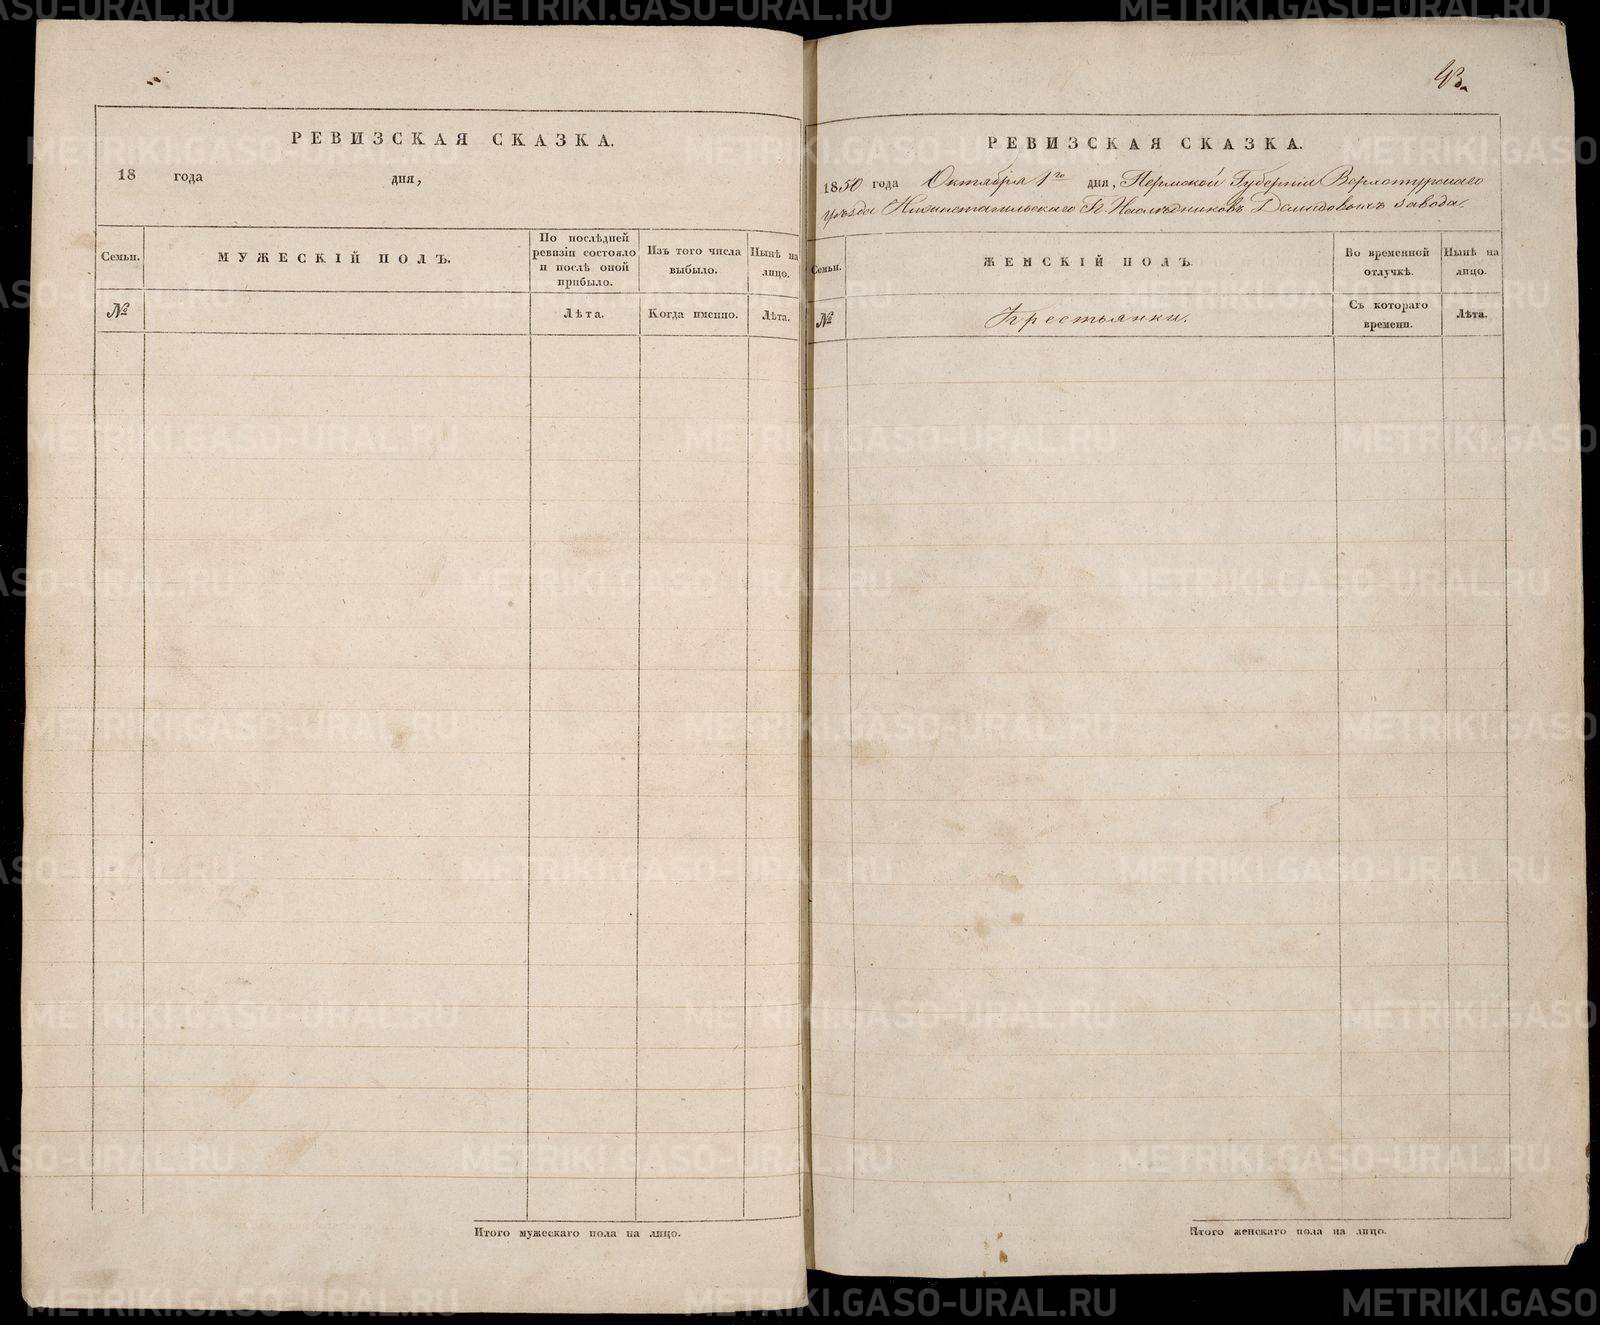 РЕВИЗСКАЯ СКАЗКА.
18 года дня,
Семьи.
МУЖЕСКІЙ ПОЛЪ.
По послѣдней ревизіи состояло и послѣ оной прибыло.
Изъ того числа выбыло.
Нынѣ на лицо.
№
Лѣта.
Когда именно.
Лѣта.
Итого мужескаго пола на лицо.
43.
РЕВИЗСКАЯ СКАЗКА.
1850 года Октября 1го дня, Пермской Губерніи Верхотурскаго
уѣзда Нижнетагильскаго Гг. Наслѣдниковъ Демидовыхъ завода.
Семьи.
ЖЕНСКІЙ ПОЛЪ.
Во временной отлучкѣ.
Нынѣ на лицо.
№
Крестьянки.
Съ котораго времени.
Лѣта.
Итого женскаго пола на лицо.
METRIKI.GASO-URAL.RU